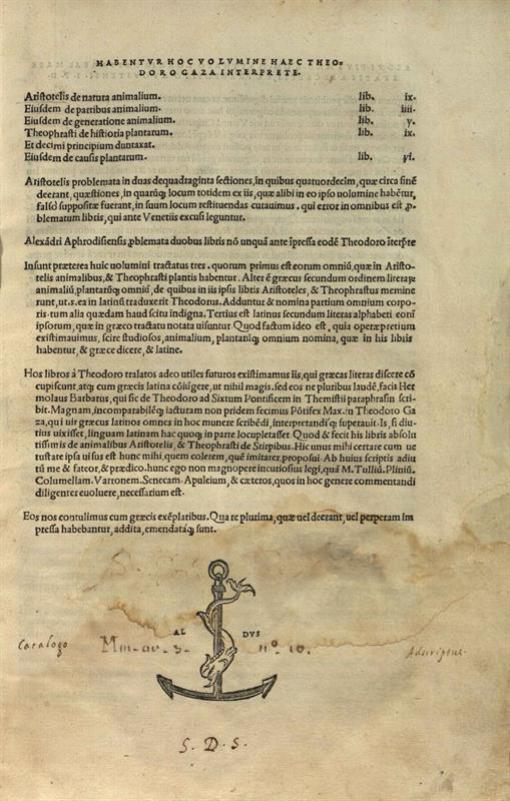 HABENTVR HOC VOLVMINE HAEC THEO-
DORO GAZA INTERPRETE.
Aristotelis de natura animalium. lib. ix.
Eiusdem de partibus animalium. lib. iiii.
Eiusdem de generatione animalium. lib. v.
Theophrasti de historia plantarum. lib. ix.
Et decimi principium duntaxat.
Eiusdem de causis plantarum. lib. vi.
Aristotelis problemata in duas dequadraginta sectiones, in quibus quatuordecim, quæ circa finē
deerant, quæstiones, in quarūq; locum totidem ex iis, quæ alibi in eo ipso uolumine habētur,
falso suppositæ fuerant, in suum locum restituendas curauimus. qui error in omnibus est ꝓ-
blematum libris, qui ante Venetiis excusi leguntur.
Alexādri Aphrodisiensis ꝓblemata duobus libris nō unquā ante īpressa eodē Theodoro īterp̄te
Insunt præterea huic uolumini tractatus tres. quorum primus est eorum omniū, quæ in Aristo-
telis animalibus, & Theophrasti plantis habentur. Alter ē græcus secundum ordinem literarū
animaliū, plantarūq; omniū, de quibus in iis ipsis libris Aristoteles, & Theophrastus memine
runt, ut. s. ea in latinū traduxerit Theodorus. Adduntur & nomina partium omnium corpo-
ris. tum alia quædam haud scitu indigna. Tertius est latinus secundum literas alphabeti eorū
ipsorum, quæ in græco tractatu notata uisuntur Quod factum ideo est, quia operæpretium
existimauimus, scire studiosos, animalium, plantarūq; omnium nomina, quæ in his libris
habentur, & græce dicere, & latine.
Hos libros à Theodoro tralatos adeo utiles futuros existimamus iis, qui græcas literas discere cō
cupiscunt, atq; cum græcis latina cōiūgere, ut nihil magis. sed eos ne pluribus laudē, facit Her
molaus Barbarus, qui sic de Theodoro ad Sixtum Pontificem in Themistii paraphrasin scri-
bit. Magnam, incomparabilēq; iacturam non pridem fecimus Pōtifex Max. in Theodoro Ga
za, qui uir græcus latinos omnes in hoc munere scribēdi, interpretandiq; superauit. Is, si diu-
tius uixisset, linguam latinam hac quoq; in parte locupletasset Quod & fecit his libris absolu
tissimis de animalibus Aristotelis, & Theophrasti de Stirpibus. Hic unus mihi certare cum ue
tustate ipsa uisus est hunc mihi, quem colerem, quē imitarer, proposui. Ab huius scriptis adiu
tū me & fateor, & prædico. hunc ego non magnopere incuriosius legi, quā M. Tulliū, Pliniū,
Columellam. Varronem. Senecam. Apuleium, & cæteros, quos in hoc genere commentandi
diligenter euoluere, necessarium est.
Eos nos contulimus cum græcis exēplaribus. Qua re plurima, quæ uel deerant, uel perperam im
pressa habebantur, addita, emendataq; sunt.
AL DVS
Catalogo
nº. 10.
Adscriptus
S. D. S.